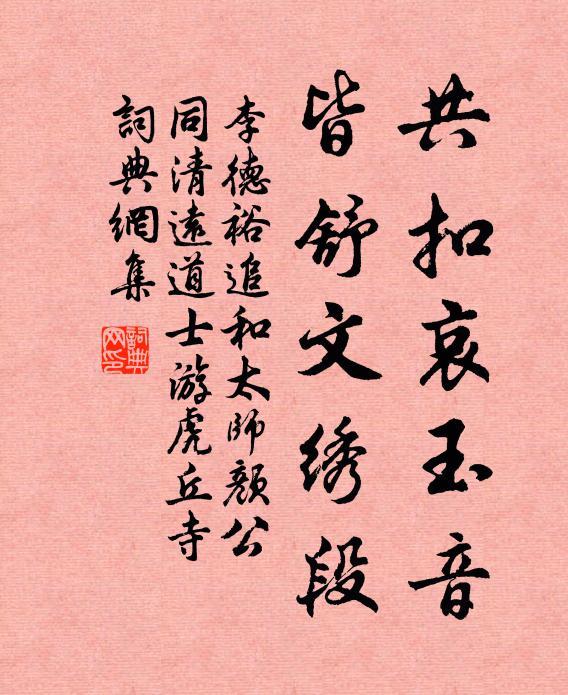 共扣哀玉音
皆舒文绣段
李德裕追和太师颜公
同清遠道士游虎丘寺
詞典網集
詞典网印